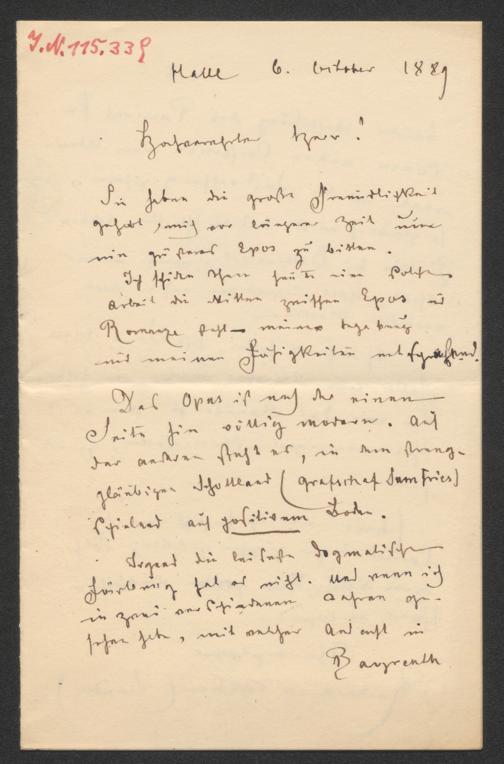 J.N. 115.339
Halle 6. Oktober 1889
Hochverehrter Herr!
Sie haben die große Freundlichkeit
gehabt, mich vor längerer Zeit um
ein größeres Epos zu bitten.
Ich schicke Ihnen heute eine solche
Arbeit die mitten zwischen Epos und
Romanze steht meiner Begabung
und meinen Fähigkeiten entsprechend.
Das Opus ist nach der einen
Seite hin völlig modern. Auf
der anderen steht es, in dem streng-
gläubigen Schottland (Grafschaft Dumfries)
spielend auf positivem Boden.
Irgend die leiseste dogmatische
Färbung hat es nicht. Und wenn ich
in zwei verschiedenen Jahren ge-
sehen habe, mit welcher Andacht in
Bayreuth